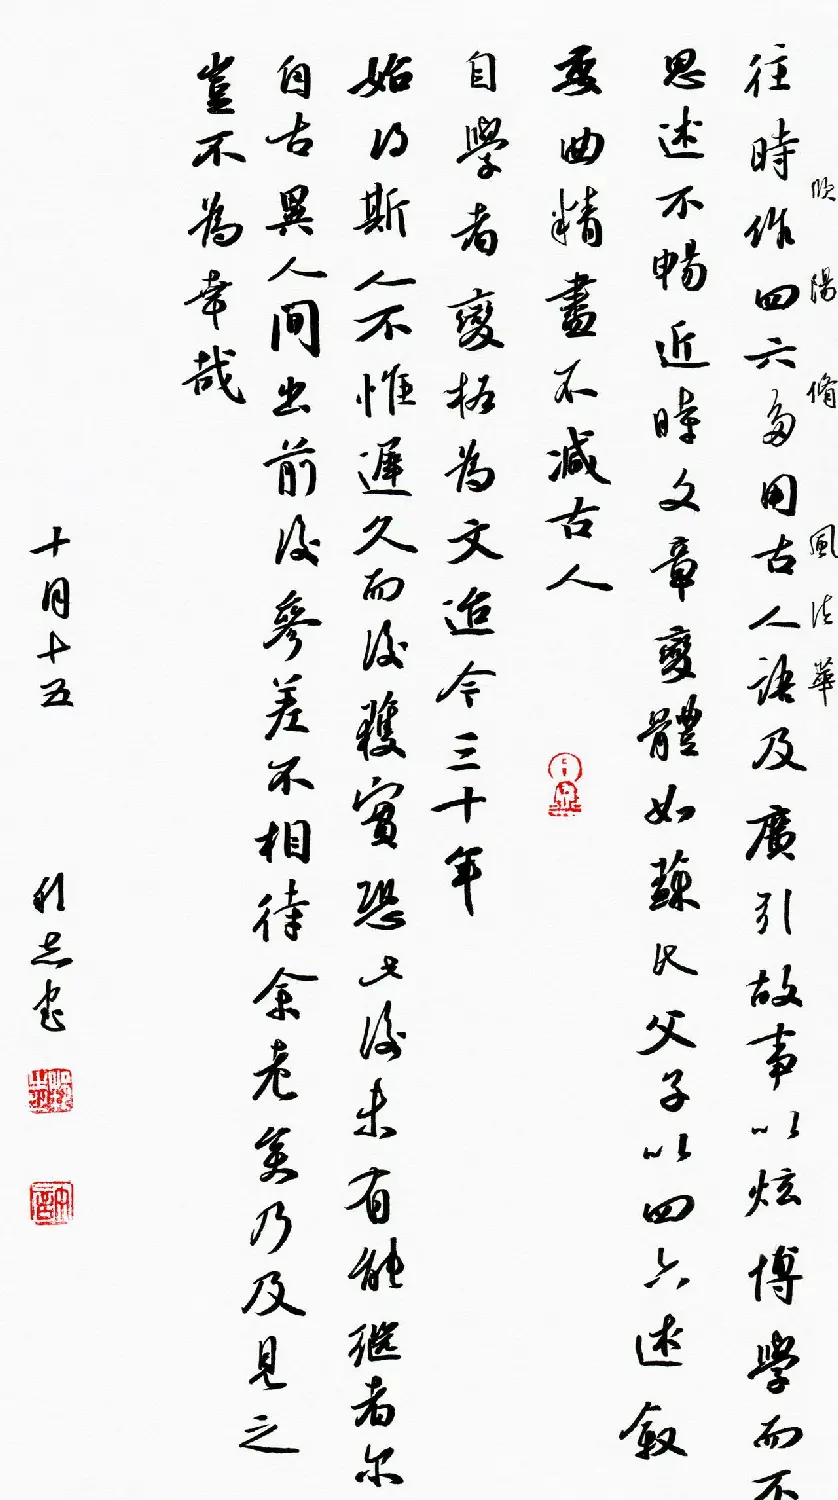 欧陽脩 風法華
往時作四六多用古人語及廣引故事以炫博學而不
思述不暢近時文章變體如蘇氏父子以四六述叙
委曲精盡不减古人
自學者變格為文迨今三十年
始得斯人不惟遲久而後獲實恐此後未有能繼者尔
自古異人間出前後參差不相待余老矣乃及見之
豈不為幸哉
十月十五
志書